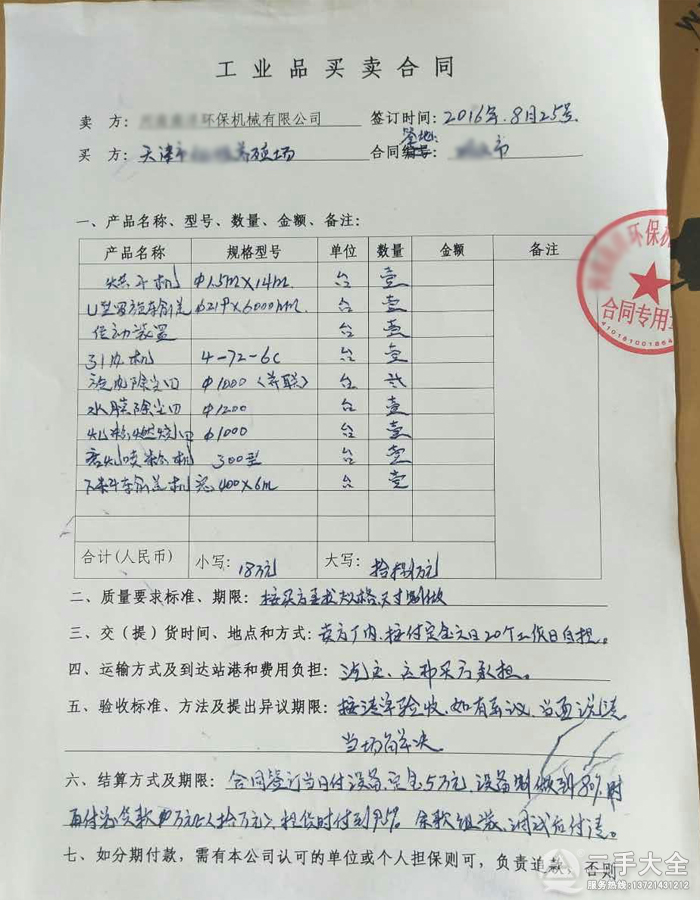 工业品买卖合同
卖 方： 环保机械有限公司 签订时间：2016年.8月25号
签地：
买 方：天津市 养殖场 合同编号： 市
一、产品名称、型号、数量、金额、备注：
产品名称 规格型号 单位 数量 金额 备注
烘干机 φ1.5m×14m. 台 壹
U型螺旋输送 φ219×6000mm. 台 壹
传动装置 台 壹
引风机 4-72-6C 台 壹
旋风除尘口 φ1000（并联） 台 贰
水膜除尘口 φ1200 台 壹
φ1000 台 壹
喷粉机 300型 台 壹
下料斗输送机 宽400×6m 台 壹
合计(人民币) 小写：18万元 大写：拾捌万元
二、质量要求标准、期限：按买方要求规格尺寸制做
三、交（提）货时间、地点和方式：卖方厂内.按付定金之日20个工作日自提。
四、运输方式及到达站港和费用负担：汽运、买方承担。
五、验收标准、方法及提出异议期限：按清单验收.如有异议、当面说清
当场解决
六、结算方式及期限：合同签订当日付设备定金5万元，设备制做到80%时
再付 货款 万元（拾万元）、提货时付到95% 余款组装、调试后付清。
七、如分期付款，需有本公司认可的单位或个人担保则可，负责追款，否则
环保机
合同专用章
二手大全
服务热线:13721431212